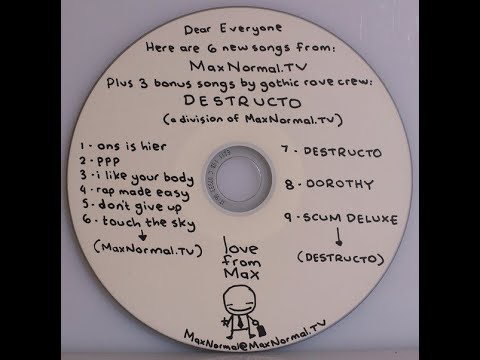 Dear Everyone
Here are 6 new songs from:
MaxNormal.TV
Plus 3 bonus songs by gothic rave crew:
DESTRUCTO
(a division of MaxNormal.TV)
1 - ons is hier
2 - ppp
3 - i like your body
4 - rap made easy
5 - don't give up
6 - touch the sky
(MaxNormal.TV)
7 - DESTRUCTO
8 - DOROTHY
9 - SCUM DELUXE
(DESTRUCTO)
love
from
Max
MaxNormal@MaxNormal.TV